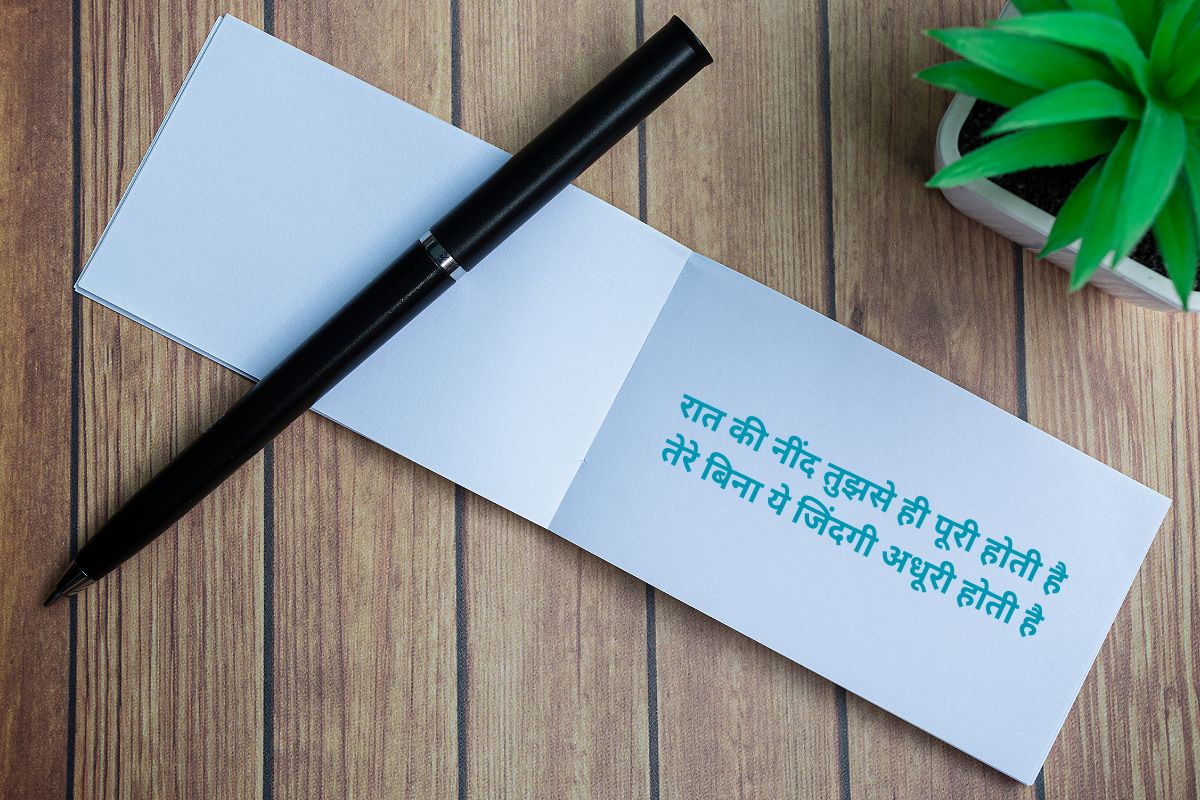 रात की नींद तुझसे ही पूरी होती है
तेरे बिना ये जिंदगी अधूरी होती है